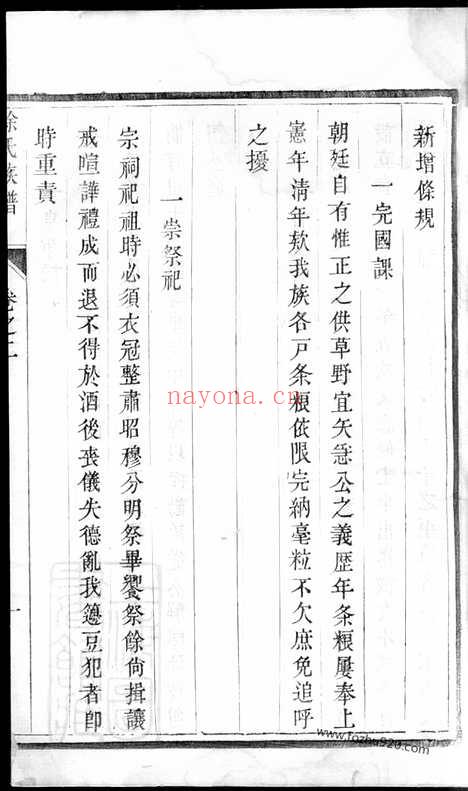 新增條規
一完國課
朝廷自有惟正之供草野宜矢急公之義歷年条粮屢奉上
憲年清年欵我族各戸条粮依限完納毫粒不欠庶免追呼
之擾
一崇祭祀
宗祠祀祖時必須衣冠整肅昭穆分明祭畢饗祭餘尙揖讓
戒喧譁禮成而退不得於酒後喪儀失德亂我籩豆犯者卽
時重責
徐氏族譜
卷之二
一
nayona.cn
www.fozhu920.com